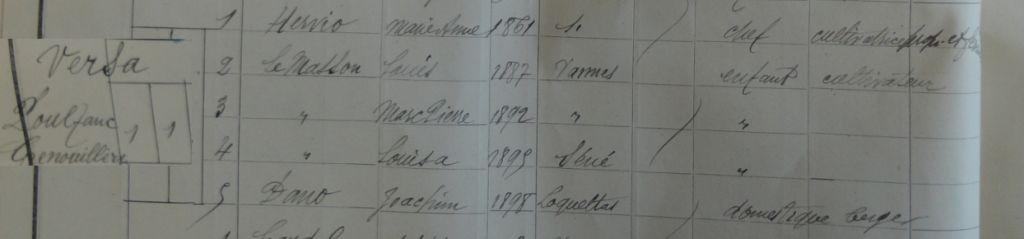 1 Hervio Marie Anne 1861 S. chef cultivatrice
Versa
2 Le Masson Louis 1887 Vannes enfant cultivateur
3 " Marc Pierre 1892 " "
1 1
4 " Louisa 1895 Séné "
5 Dano Joachim 1898 Loqueltas domestique berger